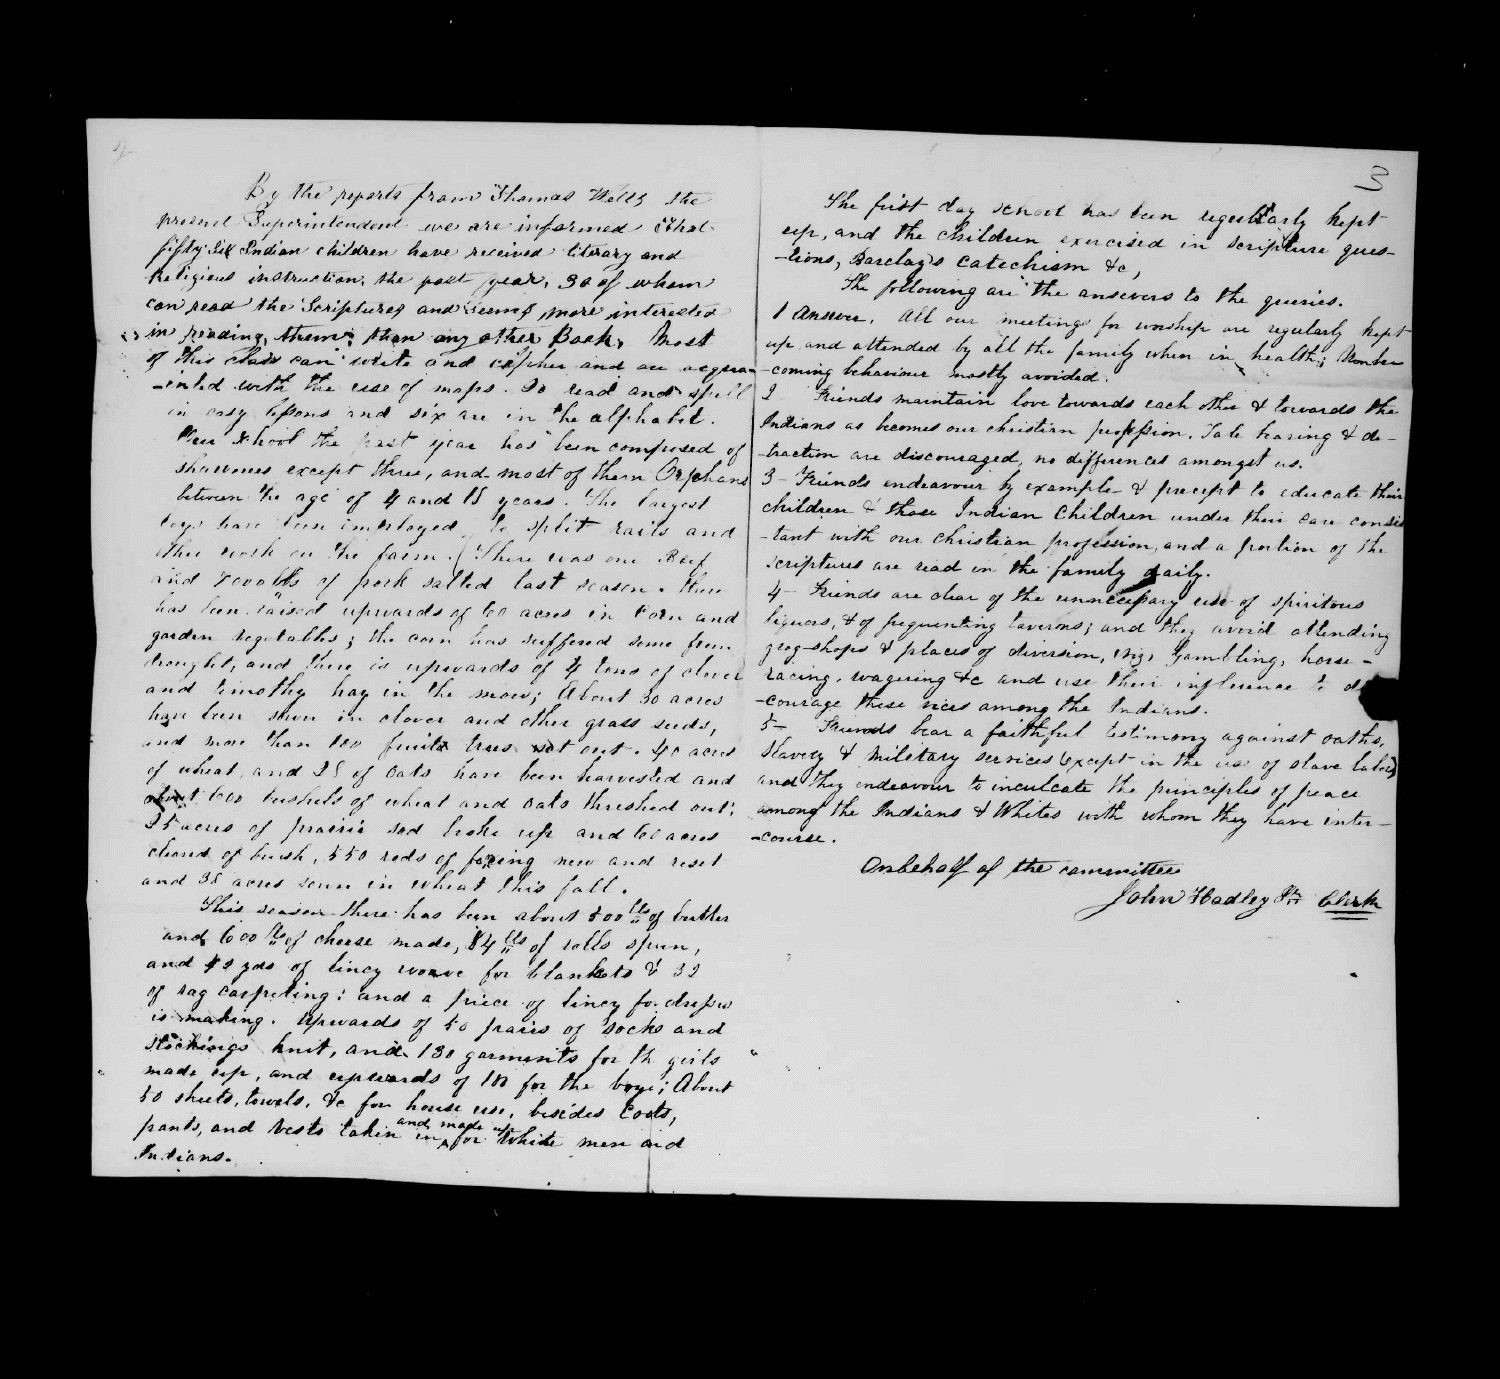 2
By the reports from Thomas Wells the
present Superintendent we are informed that
fifty six Indian children have received literary and
religious instruction, the past year, 30 of whom
can read the Scriptures and seems more interested
in reading them than any other Book, Most
of this class can write and cipher and are acqua-
-ented with the use of maps. 20 read and spell
in easy lessons and six are in the alphabet.
Our School the past year has been composed of
shawnees except three, and most of them Orphans
between the age of 4 and 18 years. The largest
boys have been employed to split rails and
other work on the farm. (There was one Beef
and lbs of pork salted last season. there
has been raised upwards of 60 acres in Corn and
garden vegetables; the corn has suffered some from
drought, and there is upwards of 4 tons of clover
and timothy hay in the mow; About 30 acres
have been sown in clover and other grass seeds,
and more than 100 fruit trees set out. 40 acres
of wheat, and 25 of oats have been harvested and
about 600 bushels of wheat and oats threshed out;
25 acres of prairie sod broke up and 60 acres
cleared of brush, 550 rods of fencing new and reset
and 38 acres sown in wheat this fall.
This season there has been about 500 lbs of butter
and 600 lbs of cheese made, 84 lbs of rolls spun,
and yds of lincy woave for blankets & 32
of rag carpeting; and a piece of lincy for dresses
is making. Upwards of 50 pairs of socks and
stockings knit, and 130 garments for th girls
made up, and upwards of 100 for the boys; About
50 sheets, towels, &c for house use, besides Coats,
pants, and vests taken in and made up for White men and
Indians.
3
The first day school has been regularly kept
up, and the children exercised in scripture ques-
-tions, Barclay's Catechism &c,
The following are the answers to the queries.
1 Answer. All our meetings for worship are regularly kept
up and attended by all the family when in health; Unbe
-coming behaviour mostly avoided.
2 Friends maintain love towards each other & towards the
Indians as becomes our christian profession. Tale bearing & de-
-traction are discouraged, no differences amongst us.
3- Friends endeavour by example & precept to educate their
children & those Indian Children under their care consis
-tant with our christian profession, and a portion of the
scriptures are read in the family daily.
4- Friends are clear of the unnecessary use of spiritous
liquors, & of frequenting taverns; and they avoid attending
grog-shops & places of diversion, viz, Gambling, horse-
racing, wagering &c and use their influence to d
-courage these vices among the Indians.
5- Friends bear a faithful testimony against oaths,
Slavery & military services (except in the use of slave labor)
and they endeavour to inculcate the principles of peace
among the Indians & Whites with whom they have inter-
-course.
On behalf of the committee
John Hadley Jr Clerk